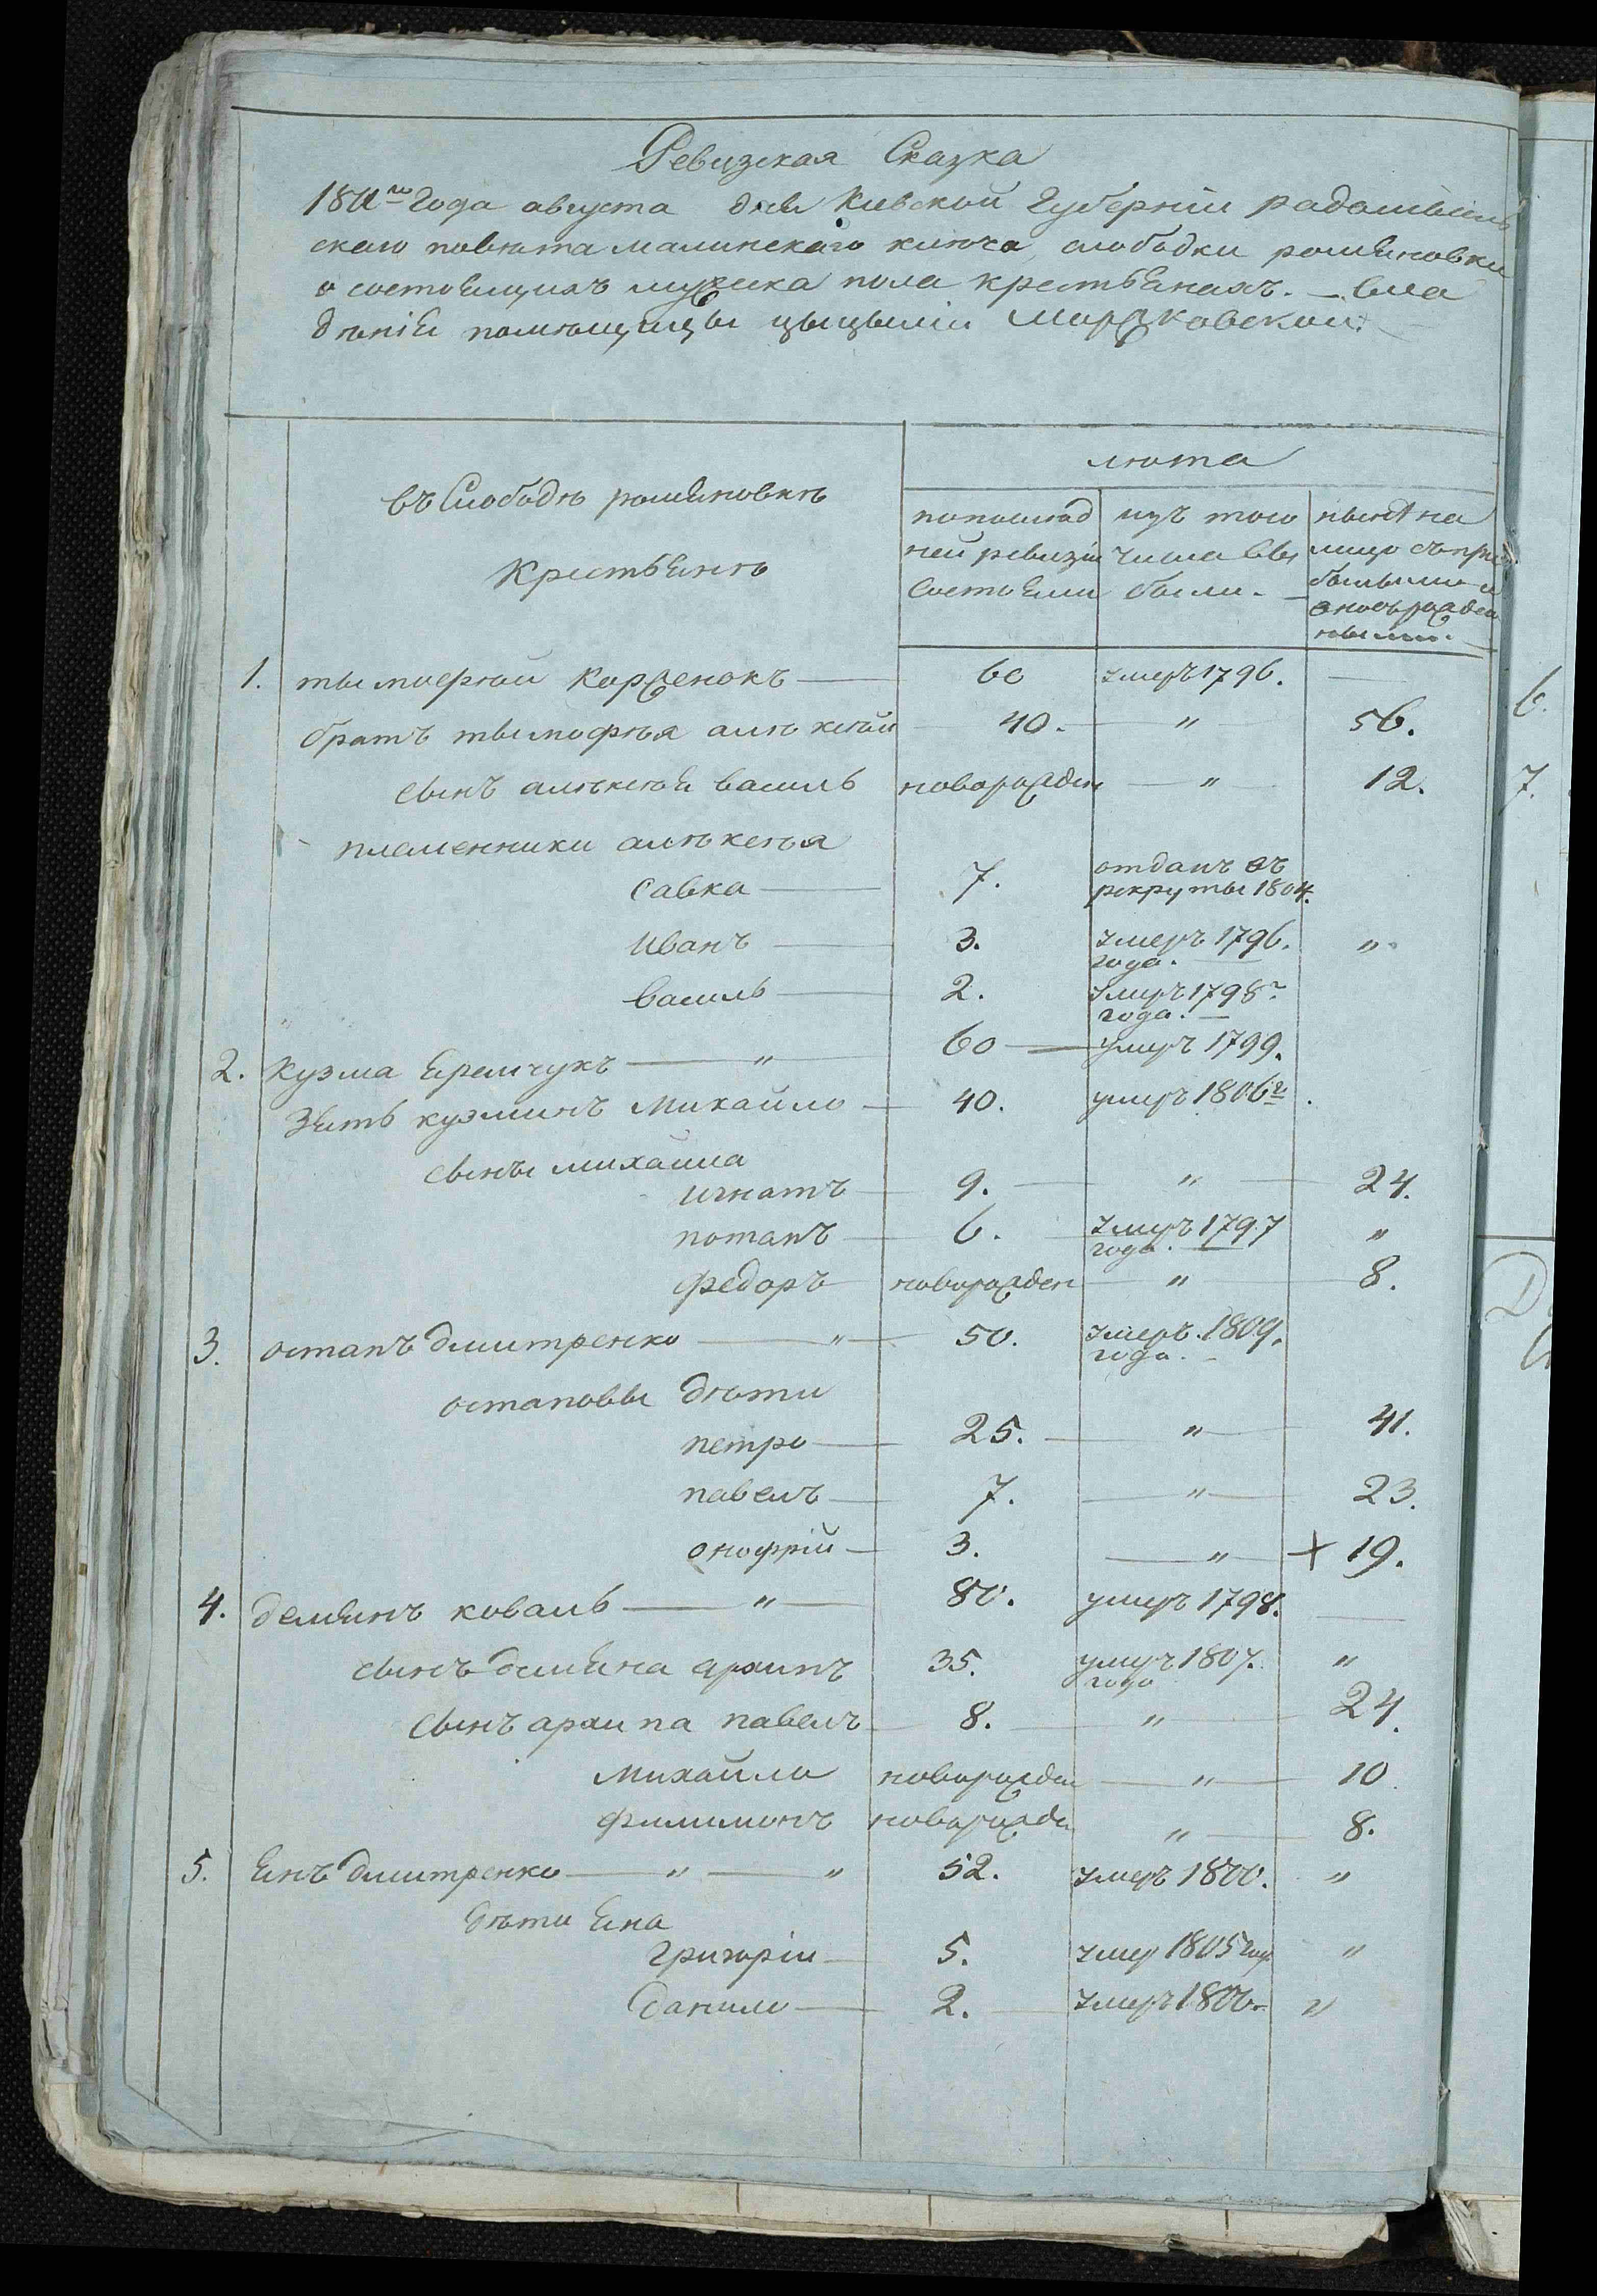 Ревизская Сказка
1811го Года августа дня Киевской Губернiи радомысль
скаго повѣта малинскаго ключа слободки ромяновки
о состоящихъ мужеска пола крестьянахъ. — вла
дѣнiи помѣщицы цыцылiи Моржковской.
лѣта
въ Слободѣ ромяновкѣ
Крестьянѣ
по послѣд
ней ревизiи
Состояли
изъ того
числа вы
были.
нынѣ на
лицо съ при
былыми и
новорожден
ными.
1. тымофѣй Корженокъ — 60 умеръ 1796. —
братъ тымофѣя алѣксѣй 40. — " — 56.
сынъ алѣксѣя василь новорожден — " — 12.
племенники алѣксѣя
Савка — 7. отданъ въ рекруты 1804.
Иванъ — 3. умеръ 1796. года. — "
Василь — 2. умеръ 1798г года. —
2. Кузма Яремчукъ — " 60 — умеръ 1799.
Зять кузминъ Михайло — 40. умеръ 1806г.
сыны михайла
игнатъ 9. — " — 24.
потапъ 6. умеръ 1797 года. — "
федоръ новорожден " 8.
3. остапъ дмитренко — " — 50. умеръ 1809. года. —
остаповы дѣти
петро — 25. — " — 41.
павелъ — 7. — " — 23.
онофрiй — 3. — " — + 19.
4. демянъ коваль — " — 80. умеръ 1798. —
сынъ демяна архипъ 35. умеръ 1807. года "
сынъ архипа павелъ 8. — " — 24.
Михайло новорожден — " — 10.
филимонъ новорожде " — 8.
5. Янъ дмитренко — " — " 52. умеръ 1800. "
дѣти Яна
григорiи — 5. умер 1805 год "
данило — 2. — умеръ 1806. "
6.
7.